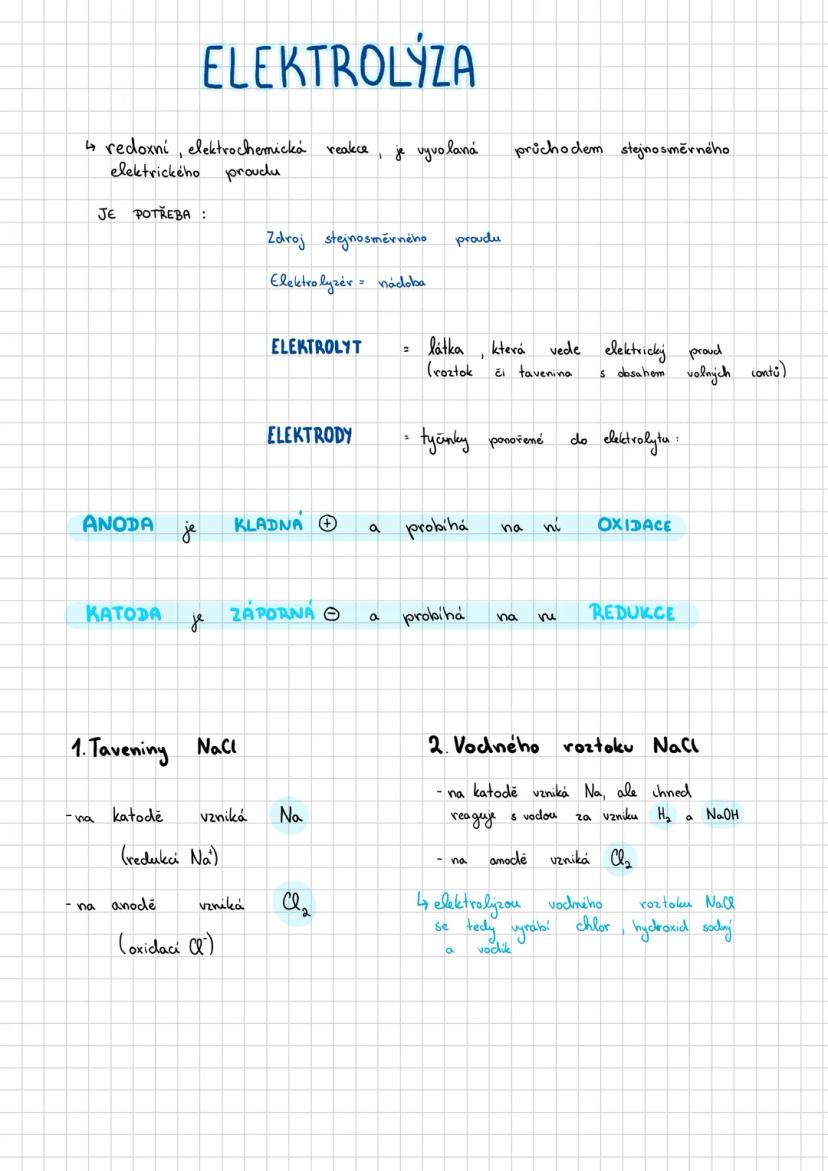 ELEKTROLÝZA
↳ redoxní, elektrochemická reakce, je vyvolaná průchodem stejnosměrného
elektrického proudu
JE POTŘEBA :
Zdroj stejnosměrného proudu
Elektrolyzér = nádoba
ELEKTROLYT = látka, která vede elektrický proud
(roztok či tavenina s obsahem volných iontů)
ELEKTRODY = tyčinky ponořené do elektrolytu :
ANODA je KLADNÁ ⊕ a probíhá na ní OXIDACE
KATODA je ZÁPORNÁ ⊖ a probíhá na ní REDUKCE
1. Taveniny NaCl
- na katodě vzniká Na
(redukcí Na⁺)
- na anodě vzniká Cl₂
(oxidací Cl⁻)
2. Vodného roztoku NaCl
- na katodě vzniká Na, ale ihned
reaguje s vodou za vzniku H₂ a NaOH
- na anodě vzniká Cl₂
↳ elektrolýzou vodného roztoku NaCl
se tedy vyrábí chlor, hydroxid sodný
a vodík